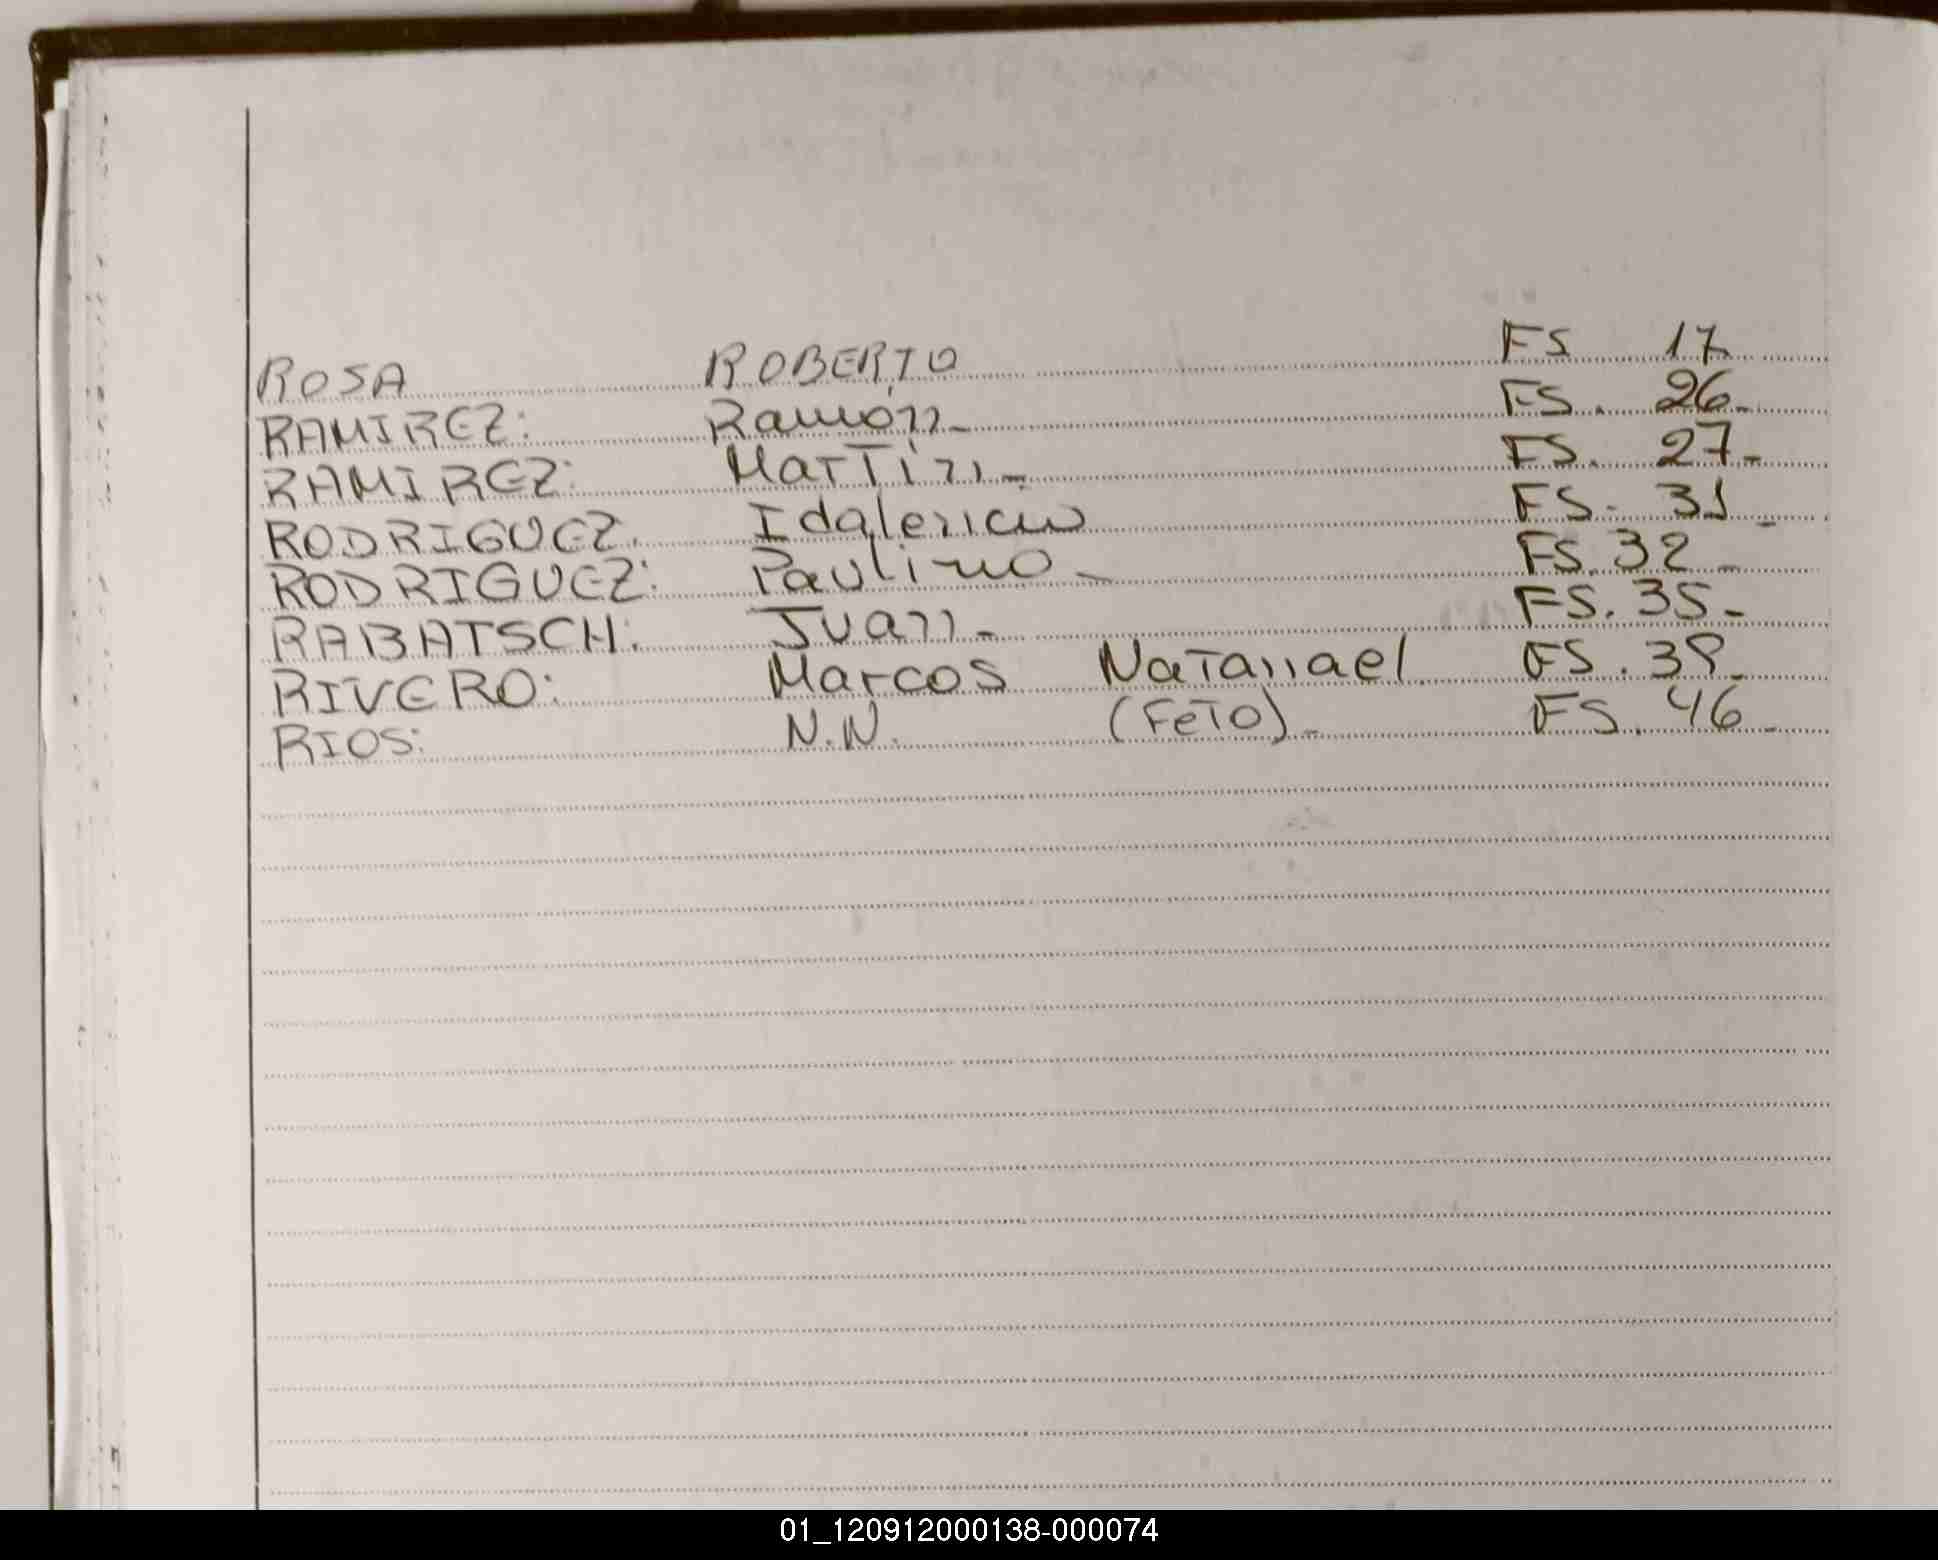 ROSA ROBERTO FS 17
RAMIREZ: Ramón - FS. 26 -
RAMIREZ: Martin - FS. 27 -
RODRIGUEZ. FS. 31 -
RODRIGUEZ: Paulino - FS. 32 -
RABATSCH: Juan - FS. 35 -
RIVERO: Marcos Natanael FS. 39 -
RIOS: N.N. (FeTO) - FS. 46 -
01_120912000138-000074